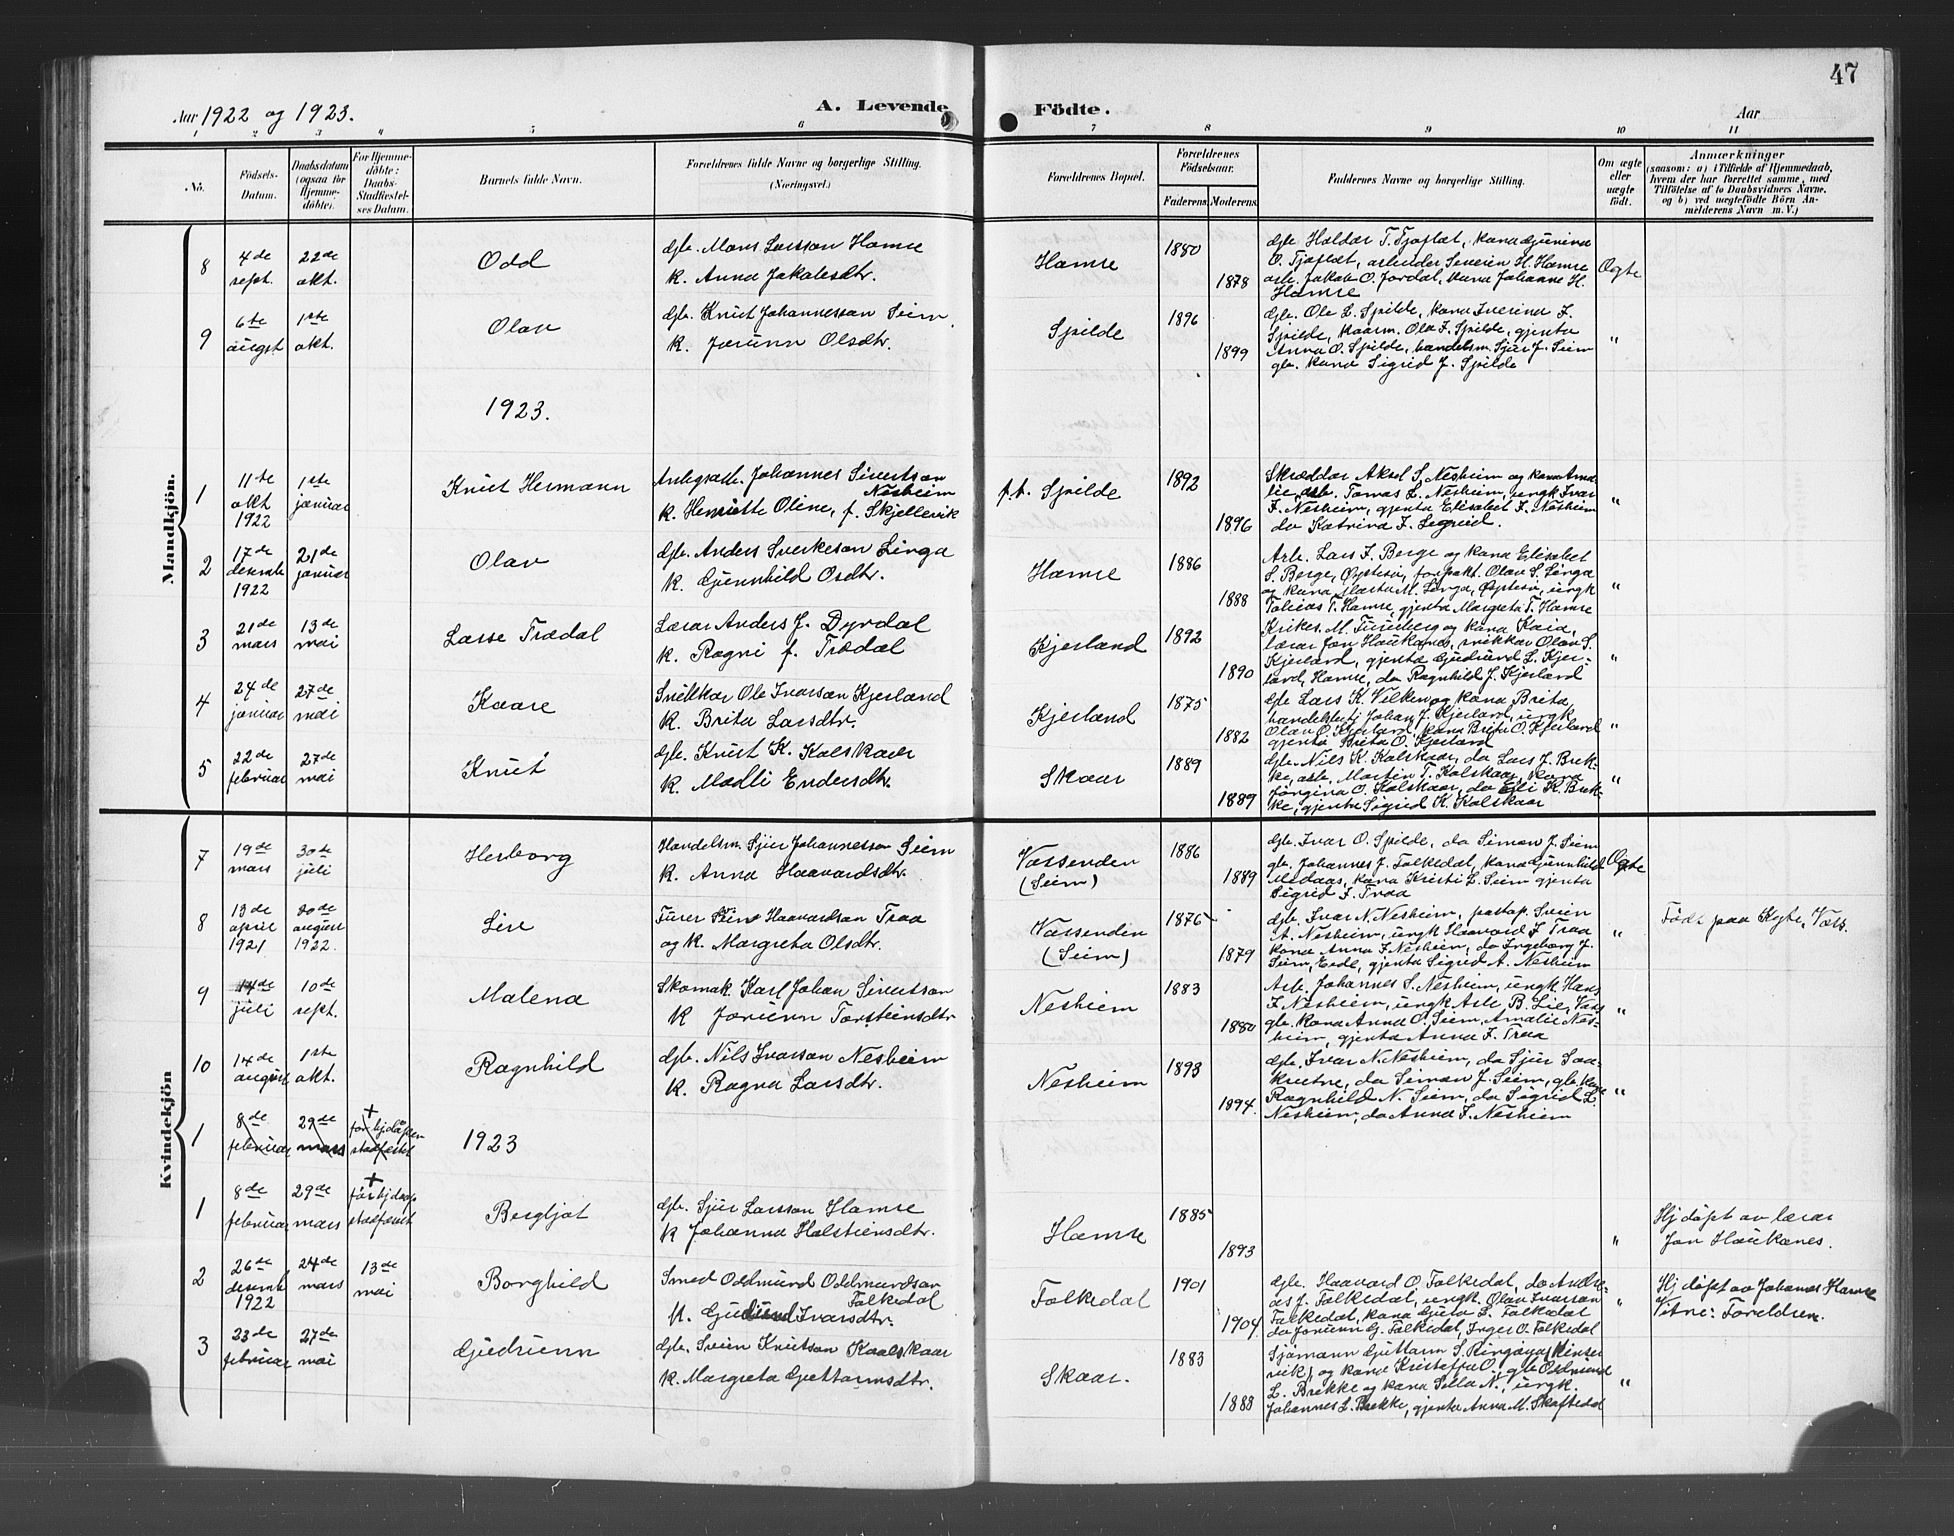 47
Aar 1922 og 1923.
A. Levende Födte.
Aar
1 2 3 4 5 6 7 8 9 10 11
No.
Födsels-Datum.
Daabsdatum (ogsaa for Hjemme-döbte).
For Hjemme-döbte: Daabs-Stadfæstel-ses Datum.
Barnets fulde Navn.
Forældrenes fulde Navne og borgerlige Stilling.
(Næringsvei.)
Forældrenes Bopæl.
Forældrenes Födselsaar.
Faderens. Moderens.
Faddernes Navne og borgerlige Stilling.
Om ægte eller uægte födt.
Anmærkninger
(saasom: a) i Tilfælde af Hjemmedaab, hvem der har forrettet samme, med Tilföielse af to Daabsvidners Navne, og b) ved uægtefödte Börn An-melderens Navn m. V.)
Mandkjön.
8 4de sept. 22de okt. Odd
gb. Mons Larsson Hamre
k. Anna Jakobsdtr.
Hamre 1880 1878
gb. Haldor T. Tjoflot, kona Gunina
O. Tjoflot, arbeider Severin H. Hamre
arb. Jakob O. Jordal, kona Johanne H.
Hamre
Ægte
9 6te augst 1ste okt. Olav
gb. Knut Johannesson Seim
k. Jorunn Olsdtr.
Spilde 1896 1899
gb. Ole L. Spilde, kona Iverina I.
Spilde, kaarm. Ola I. Spilde, gjenta
Anna O. Spilde, handelsm. Sjur J. Seim
gb. kona Sigrid J. Spilde
"
1923.
1 11te okt 1922 1ste januar Knut Hermann
Anlegsarb. Johannes Sivertson Nesheim
k. Henriette Oline, f. Skjellevik
p.t. Spilde 1892 1896
Skræddar Aksel S. Nesheim og kona Ama-
lie, arb. Tomas L. Nesheim, ungk Ivar
I. Nesheim, gjenta Elisabet I. Nesheim
do Katrina I. Segreid.
"
2 17de desemb 1922 21de januar Olav
gb. Anders Sverkeson Linga
k. Gunnhild Osdtr.
Hamre 1886 1888
Arb. Lars I. Berge og kona Elisabet
S. Berge, Øystese, forpakt. Olav S. Linga
og kona Marta M. Linga, Øystese, ungk
Tobias T. Hamre, gjenta Margreta T. Hamre
"
3 21de mars 13de mai Lasse Trædal
Lærar Anders J. Dyrdal
k. Ragni f. Trædal
Kjerland 1892 1890
Kirkes. M. Tuneberg og kona Kaia,
lærar Jon Haukanes, snikkar Olav S.
Kjerland, gjenta Gudrund L. Kjer-
land, Hamre, do Ragnhild J. Kjerland
"
4 24de januar 27de mai Kaare
Snikkar Ole Ivarson Kjerland
k. Brita Larsdtr.
Kjerland 1875 1882
gb Lars K. Vilken og kona Brita
handelsbetj Johan J. Kjerland, ungk
Olav O. Kjerland, kona Brita O. Kjerland
gjenta Brita O. Kjerland
"
5 22de februar 27de mai Knut
gb. Knut K. Kolskaar
k. Madli Endersdtr.
Skaar 1889 1889
gb. Nils K. Kolskaar, do Lars J. Brek-
ke, arb. Martin T. Kolskaar, kona
Jörgina O. Kolskaar, do Eli K. Brek-
ke, gjenta Sigrid K. Kolskaar
"
Kvindekjön
7 19de mars 30te juli Herborg
Handelsm. Sjur Johannesson Seim
k. Anna Haavardsdtr.
Vassenden (Seim) 1886 1889
gb. Ivar O. Spilde, do Simon J. Seim
gb. Johannes J. Folkedal, kona Gunnhild
Medaas, kona Kristi L. Seim gjenta
Sigrid I. Traa
Ægte
8 13de april 1921 20de august 1922. Liv
Furer Haavardson Traa
og k. Margreta Olsdtr.
Vassenden (Seim) 1876 1879
gb. Ivar N. Nesheim, postop. Svein
A. Nesheim, ungk Haavard I. Traa
kona Anna I. Nesheim, do Ingeborg J.
Seim, Eide, gjenta Sigrid A. Nesheim
"
Födt paa Kyte, Voss.
9 14de juli 10de sept. Malena
Skomak. Karl Johan Sivertson
k Jorunn Torsteinsdtr
Nesheim 1883 1880
Arb. Johannes S. Nesheim, ungk Hans
I. Nesheim, ungk Asle B. Lie, Voss
gb. kona Anna O. Seim, Amalie Nes-
heim, gjenta Anna I. Traa
"
10 14de august 1ste okt. Ragnhild
gb. Nils Ivarson Nesheim
k. Ragna Larsdtr.
Nesheim 1893 1894.
gb. Ivar N. Nesheim, do Sjur Saa-
kvitne, do Simon J. Seim, gb. kona
Ragnhild N. Seim, do Sigrid L.
Nesheim, do Anna I. Nesheim
"
1 8de februar 29de mars stadfæstet
1923
1 8de februar 29de mars stadfæstet Bergljot
gb. Sjur Larsson Hamre
k Johanna Holsteinsdtr.
Hamre 1885 1893
"
Hj döpt av lærar
Jon Haukanes.
2 26de desemb 1922 24de mars 13de mai Borghild
Smed Oddmund Oddmundson Folkedal
k. Ivarsdtr.
Folkedal 1901 1904
gb. Haavard O. Folkedal, do Andre-
as J. Folkedal, ungk. Olav Ivarson
Folkedal, kona Guta L. Folkedal
do Jorunn G. Folkedal, Inger O. Folkedal
"
Hj döpt av Johannes Hamre
Vitne: Foreldren.
3 23de februar 27de mai Gudrunn
gb. Svein Knutson Kaalskaar
k. Margreta Guttormsdtr.
Skaar. 1883 1888
Sjömann Guttorm S. Ringöya (Kinser
vik) og kona Kristoffa O., gb. Odmund
L. Brekke og kona Sella N., ungk.
Johannes L. Brekke, gjenta Anna M. Skaftedal
"